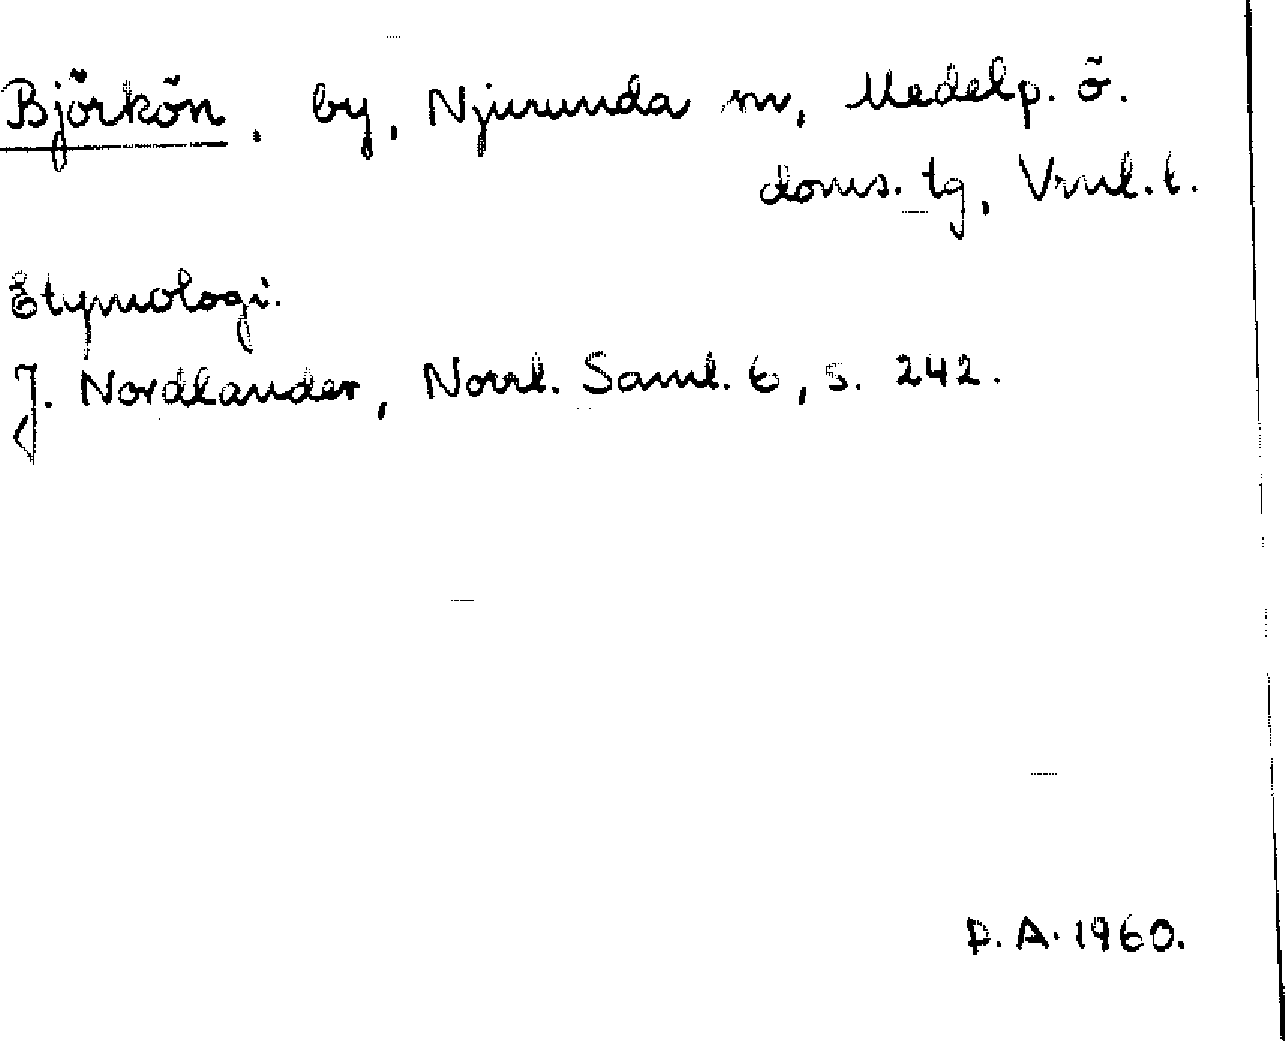 Björkön, by, Njurunda sn, Medelp. ö.
doms. tg, Vrnl. t.
Etymologi.
J. Nordlander, Norrl. Saml. 6, s. 242.
P. A. 1960.